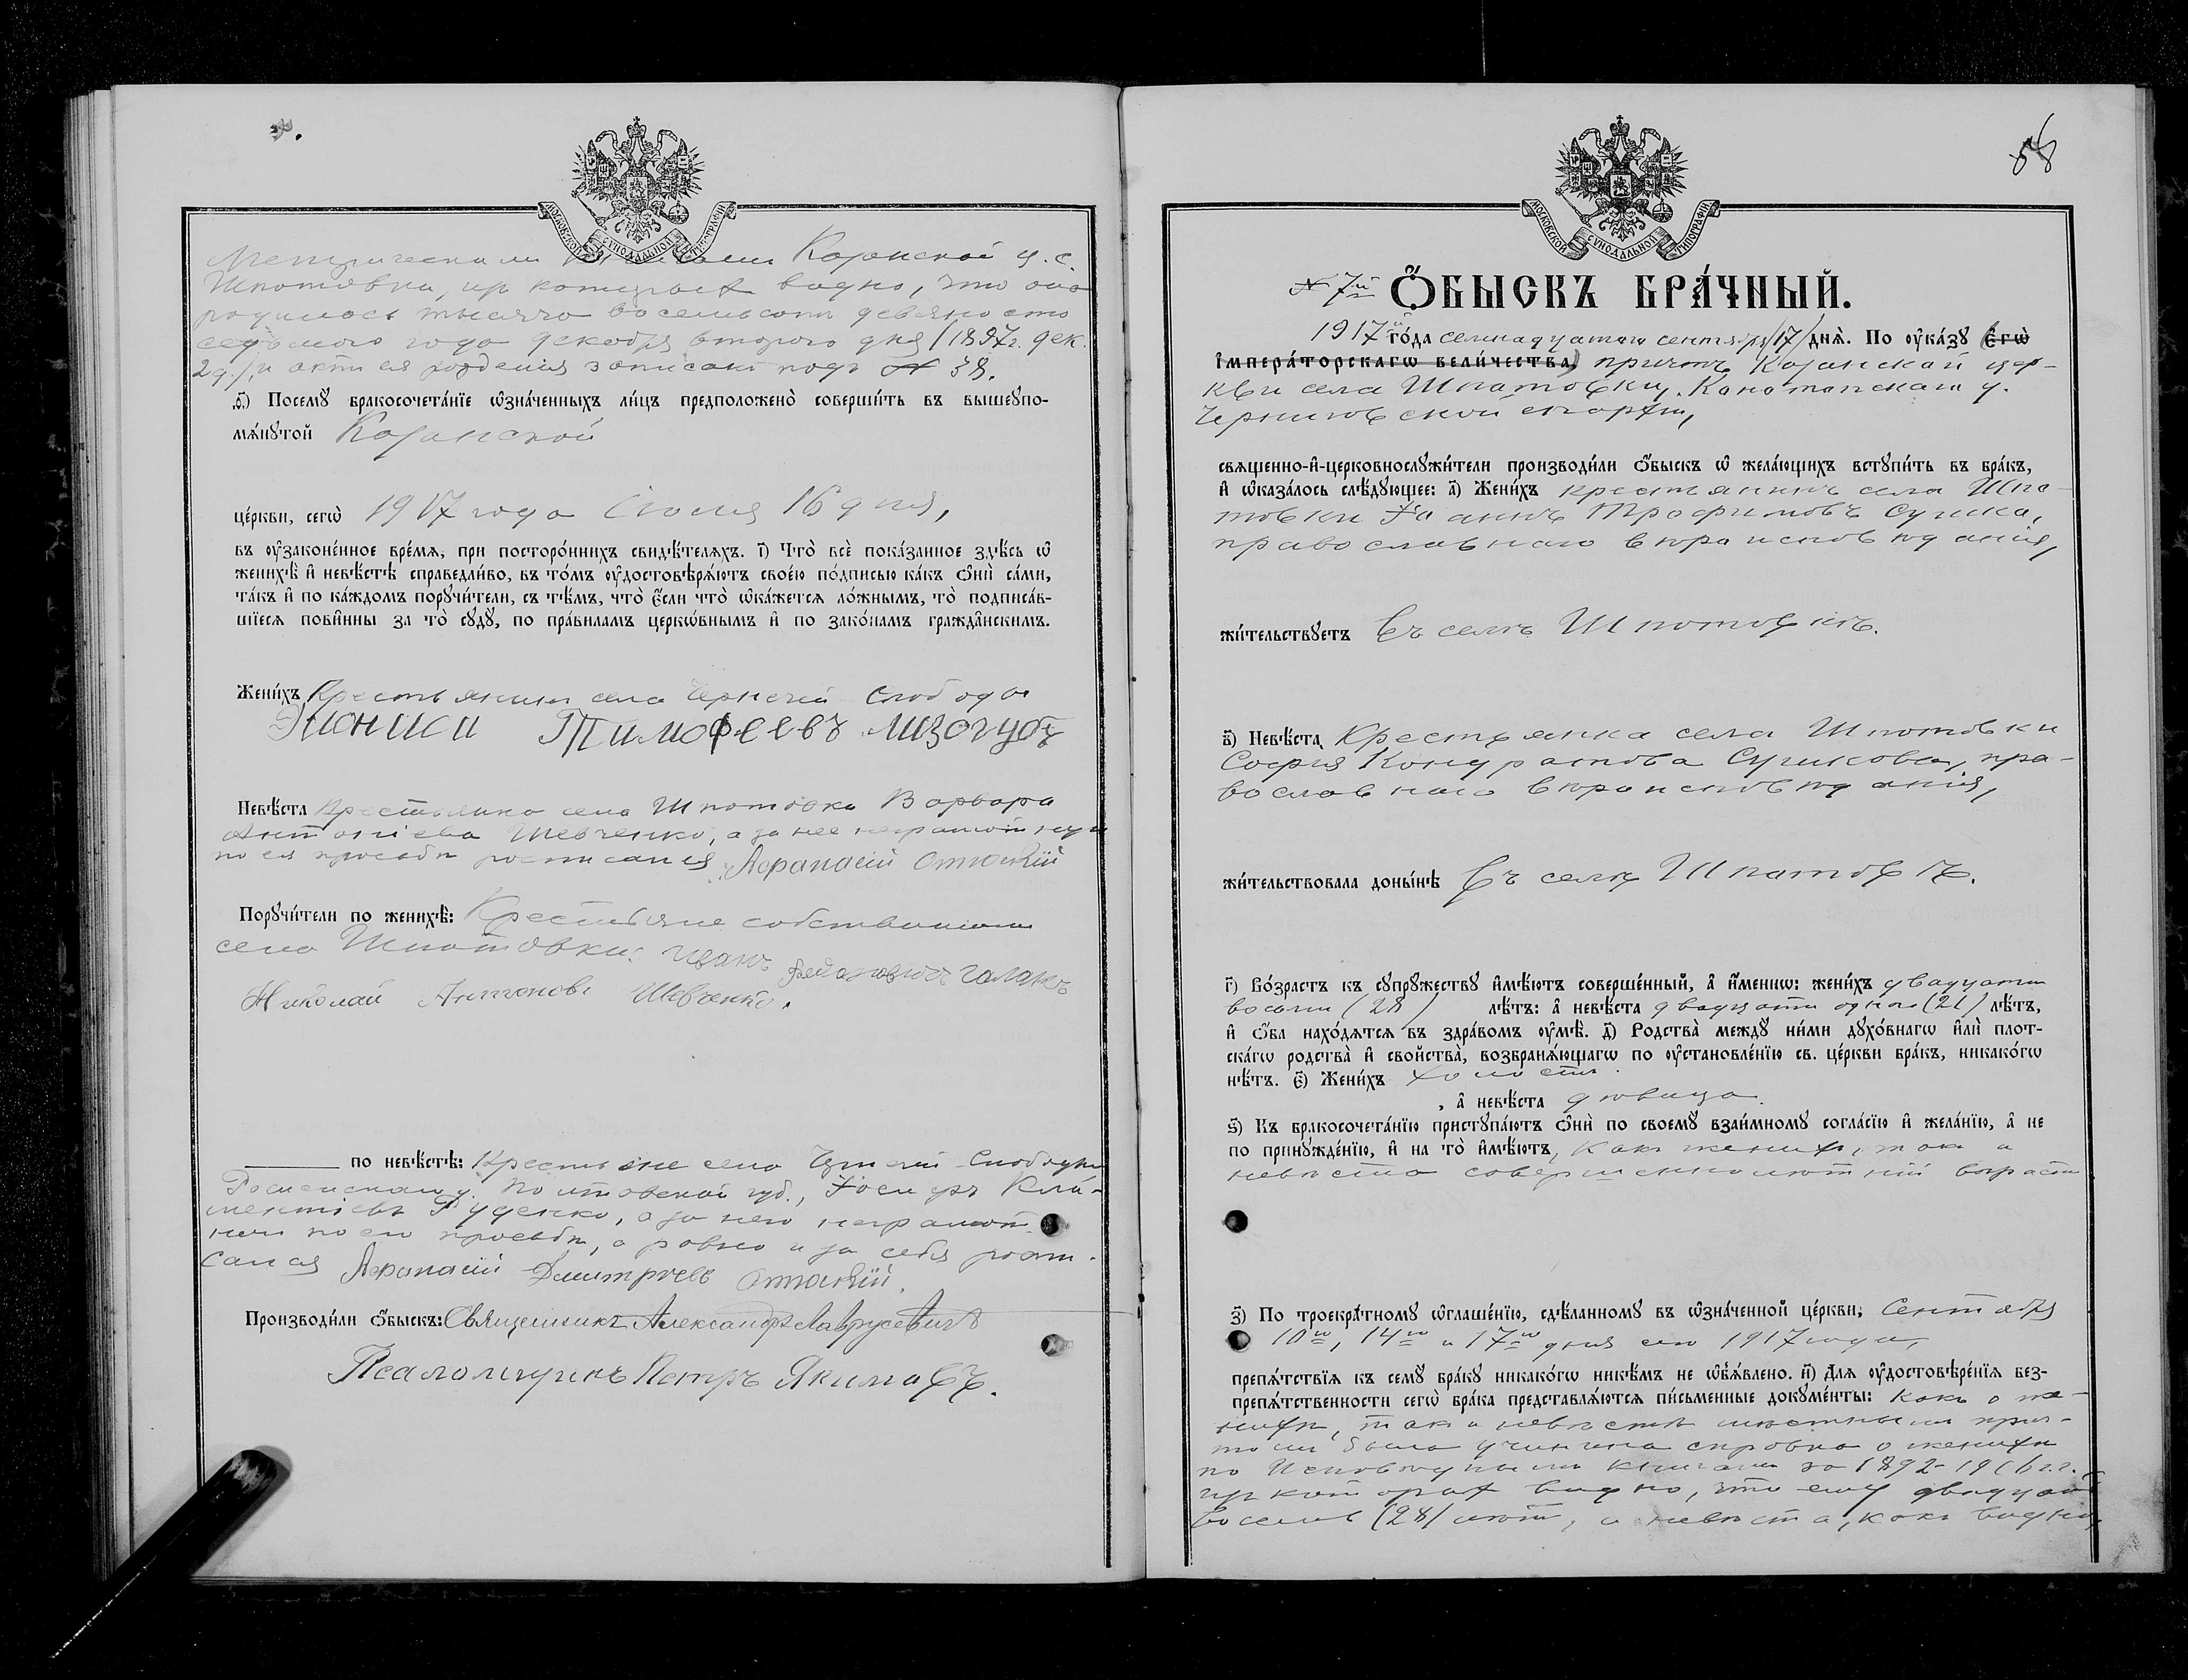 МОСКОВСКОЙ СѴНОДАЛЬНОЙ ТИПОГРАФІИ
Метрическими Казанской ц. с.
Шпотовки, изъ которыхъ видно, что она
родилась тысяча восемьсотъ девяносто
седьмого года декабря второго дня (1897г. дек.
2 д.), и актъ ея рожденія записанъ подъ № 38.
ѳ҃) Посемꙋ̀ бракосочета́нїе ѡ҆зна́ченныхъ ли́цъ предположено̀ соверши́ть въ вышеꙋпо-
мѧ́нꙋтой Казанской
це́ркви, сегѡ̀ 1917 года Іюля 16 дня,
въ ᲂу҆зако́ненное вре́мѧ, при посторо́ннихъ свидѣ́телѧхъ. і҃) Что̀ всѐ пока́занное здѣ́сь ѡ҆
женихѣ̀ и҆ невѣ́стѣ справедли́во, въ то́мъ ᲂу҆достовѣрѧ́ютъ свое́ю по́дписью ка́къ ѻ҆нѝ са́ми,
та́къ и҆ по ка́ждомъ порꙋчи́тели, съ тѣ́мъ, что̀ є҆́сли что̀ ѡ҆ка́жетсѧ ло́жнымъ, то̀ подписа́в-
шїесѧ пови́нны за то̀ сꙋдꙋ̀, по пра́виламъ церкѡ́внымъ и҆ по зако́намъ гражда̑нскимъ.
Жени́хъ Крестьянинъ села Чернечей Слободы
Дионисий Тимофеевъ Лизогубъ
Невѣ́ста Крестьянка села Шпотовки Варвара
Антоніева Шевченко, а за нее неграмотную
по ея просьбѣ росписался Афанасій
Порꙋчи́тели по женихѣ̀: Крестьяне собственники
села Шпотовки: Иванъ Галакъ
Николай Антоновъ Шевченко.
по невѣ́стѣ: Крестьяне села Чернечей Слободы
Роменскаго у. Полтовской губ., Іосифъ Кли-
ментіевъ Руденко, а за него неграмот-
наго по его просьбѣ, а равно и за себя роспи-
сался Афанасій Дмитріевъ
Производи́ли ѻ҆́быскъ: Священникъ Александръ Лаврусевичъ
Псаломщикъ Петръ Якимовъ.
58
МОСКОВСКОЙ СѴНОДАЛЬНОЙ ТИПОГРАФІИ
№ 7й Ѻ҆́БЫСКЪ БРА́ЧНЫЙ.
1917го го́да семнадцатаго сентября (17) днѧ̀. По ᲂу҆ка́зꙋ (Є҆гѡ̀
І҆мпера́торскагѡ вели́чества) причтъ Казанской цер-
кви села Шпотовки, Конотопскаго у.
Черниговской епархіи,
свѧще́нно-и҆-церковнослꙋжи́тели производи́ли ѻ҆́быскъ ѡ҆ жела́ющихъ встꙋпи́ть въ бра́къ,
и҆ ѡ҆каза́лось слѣ́дꙋющее: а҃) Жени́хъ крестьянинъ села Шпо-
товки Іоаннъ Трофимовъ Сушко,
православнаго вѣроисповѣданія,
жи́тельствꙋетъ въ селѣ Шпотовкѣ.
в҃) Невѣ́ста Крестьянка села Шпотовки
Софія Кондратова, пра-
вославнаго вѣроисповѣданія,
жи́тельствовала доны́нѣ въ селѣ
г҃) Во́зрастъ къ сꙋпрꙋ́жествꙋ и҆мѣ́ютъ соверше́нный, а҆ и҆́меннѡ: жени́хъ двадцати
восьми (28) лѣ́тъ: а҆ невѣ́ста двадцати одного (21) лѣ́тъ,
и҆ ѻ҆́ба нахо́дѧтсѧ въ здра́вомъ ᲂу҆мѣ̀. д҃) Родства̀ междꙋ̀ ни́ми дꙋхо́внагѡ и҆лѝ плот-
ска́гѡ родства̀ и҆ свойства̀, возбранѧ́ющагѡ по ᲂу҆становле́нїю св. це́ркви бра́къ, никако́гѡ
нѣ́тъ. є҃) Жени́хъ холостъ
, а҆ невѣ́ста дѣвица.
ѕ҃) Къ бракосочета́нїю пристꙋпа́ютъ ѻ҆нѝ по своемꙋ̀ взаи́мномꙋ согла́сїю и҆ жела́нїю, а҆ не
по принꙋжде́нїю, и҆ на то̀ и҆мѣ́ютъ, какъ женихъ, такъ и
невѣста совершеннолѣтній возрастъ
з҃) По троекра́тномꙋ ѡ҆глаше́нїю, сдѣ́ланномꙋ въ ѡ҆зна́ченной це́ркви, Сентября
10го, 14го и 17го дня сего 1917 года,
препѧ́тствїѧ къ семꙋ̀ бра́кꙋ никако́гѡ никѣ́мъ не ѡ҆б̾ѧ́влено. и҃) Длѧ ᲂу҆достовѣре́нїѧ без-
препѧ́тственности сегѡ̀ бра́ка представлѧ́ютсѧ пи́сьменные докꙋме́нты: какъ о же-
нихѣ, такъ и невѣстѣ мѣстнымъ прич-
томъ была учинена справка о женихѣ
по Исповѣднымъ книгамъ за 1892-1916 г.г.
изъ которыхъ видно, что ему двадцать
восемь (28) лѣтъ, а невѣста, какъ видно